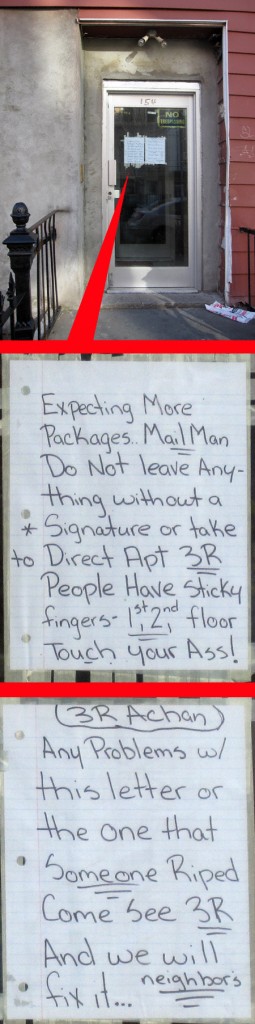 154
NO
Expecting More
Packages.. Mail Man
Do Not leave Any-
thing without a
* Signature or take
to Direct Apt 3R
People Have Sticky
fingers- 1st, 2nd, floor
Touch your Ass!
(3R Achan)
Any Problems w/
this letter or
the one that
Someone Riped
Come See 3R
And we will
fix it... neighbors